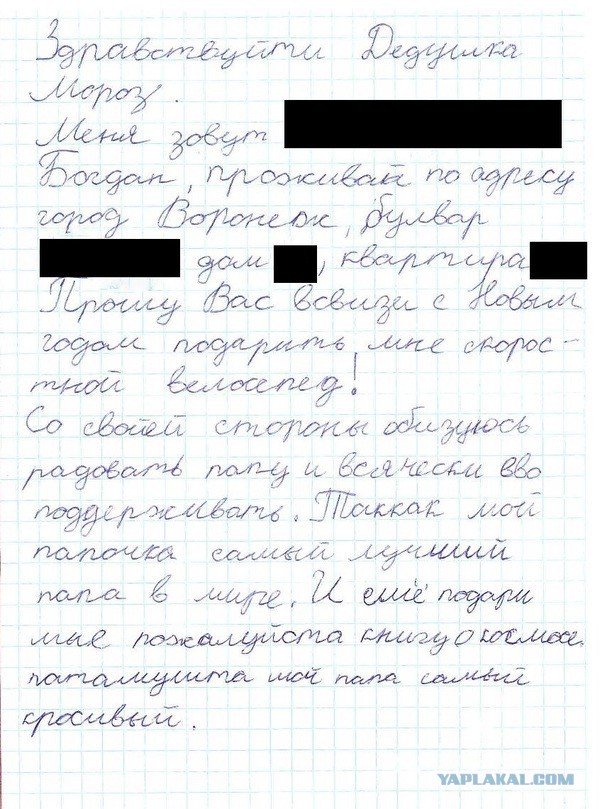 Здравствуйти Дедушка
Мороз.
Меня зовут
Богдан, проживаю по адресу
город Воронеж, булвар
дом , квартира
Прошу Вас всвизи с Новым
годом подарить мне скорос-
тной велосепед!
Со своей стороны обизуюсь
радовать папу и всячески ево
поддерживать. Таккак мой
папочка самый лучший
папа в мире. И ещё подари
мне пожалуйста книгу о космосе.
патамушта мой папа самый
кросивый.
YAPLAKAL.COM